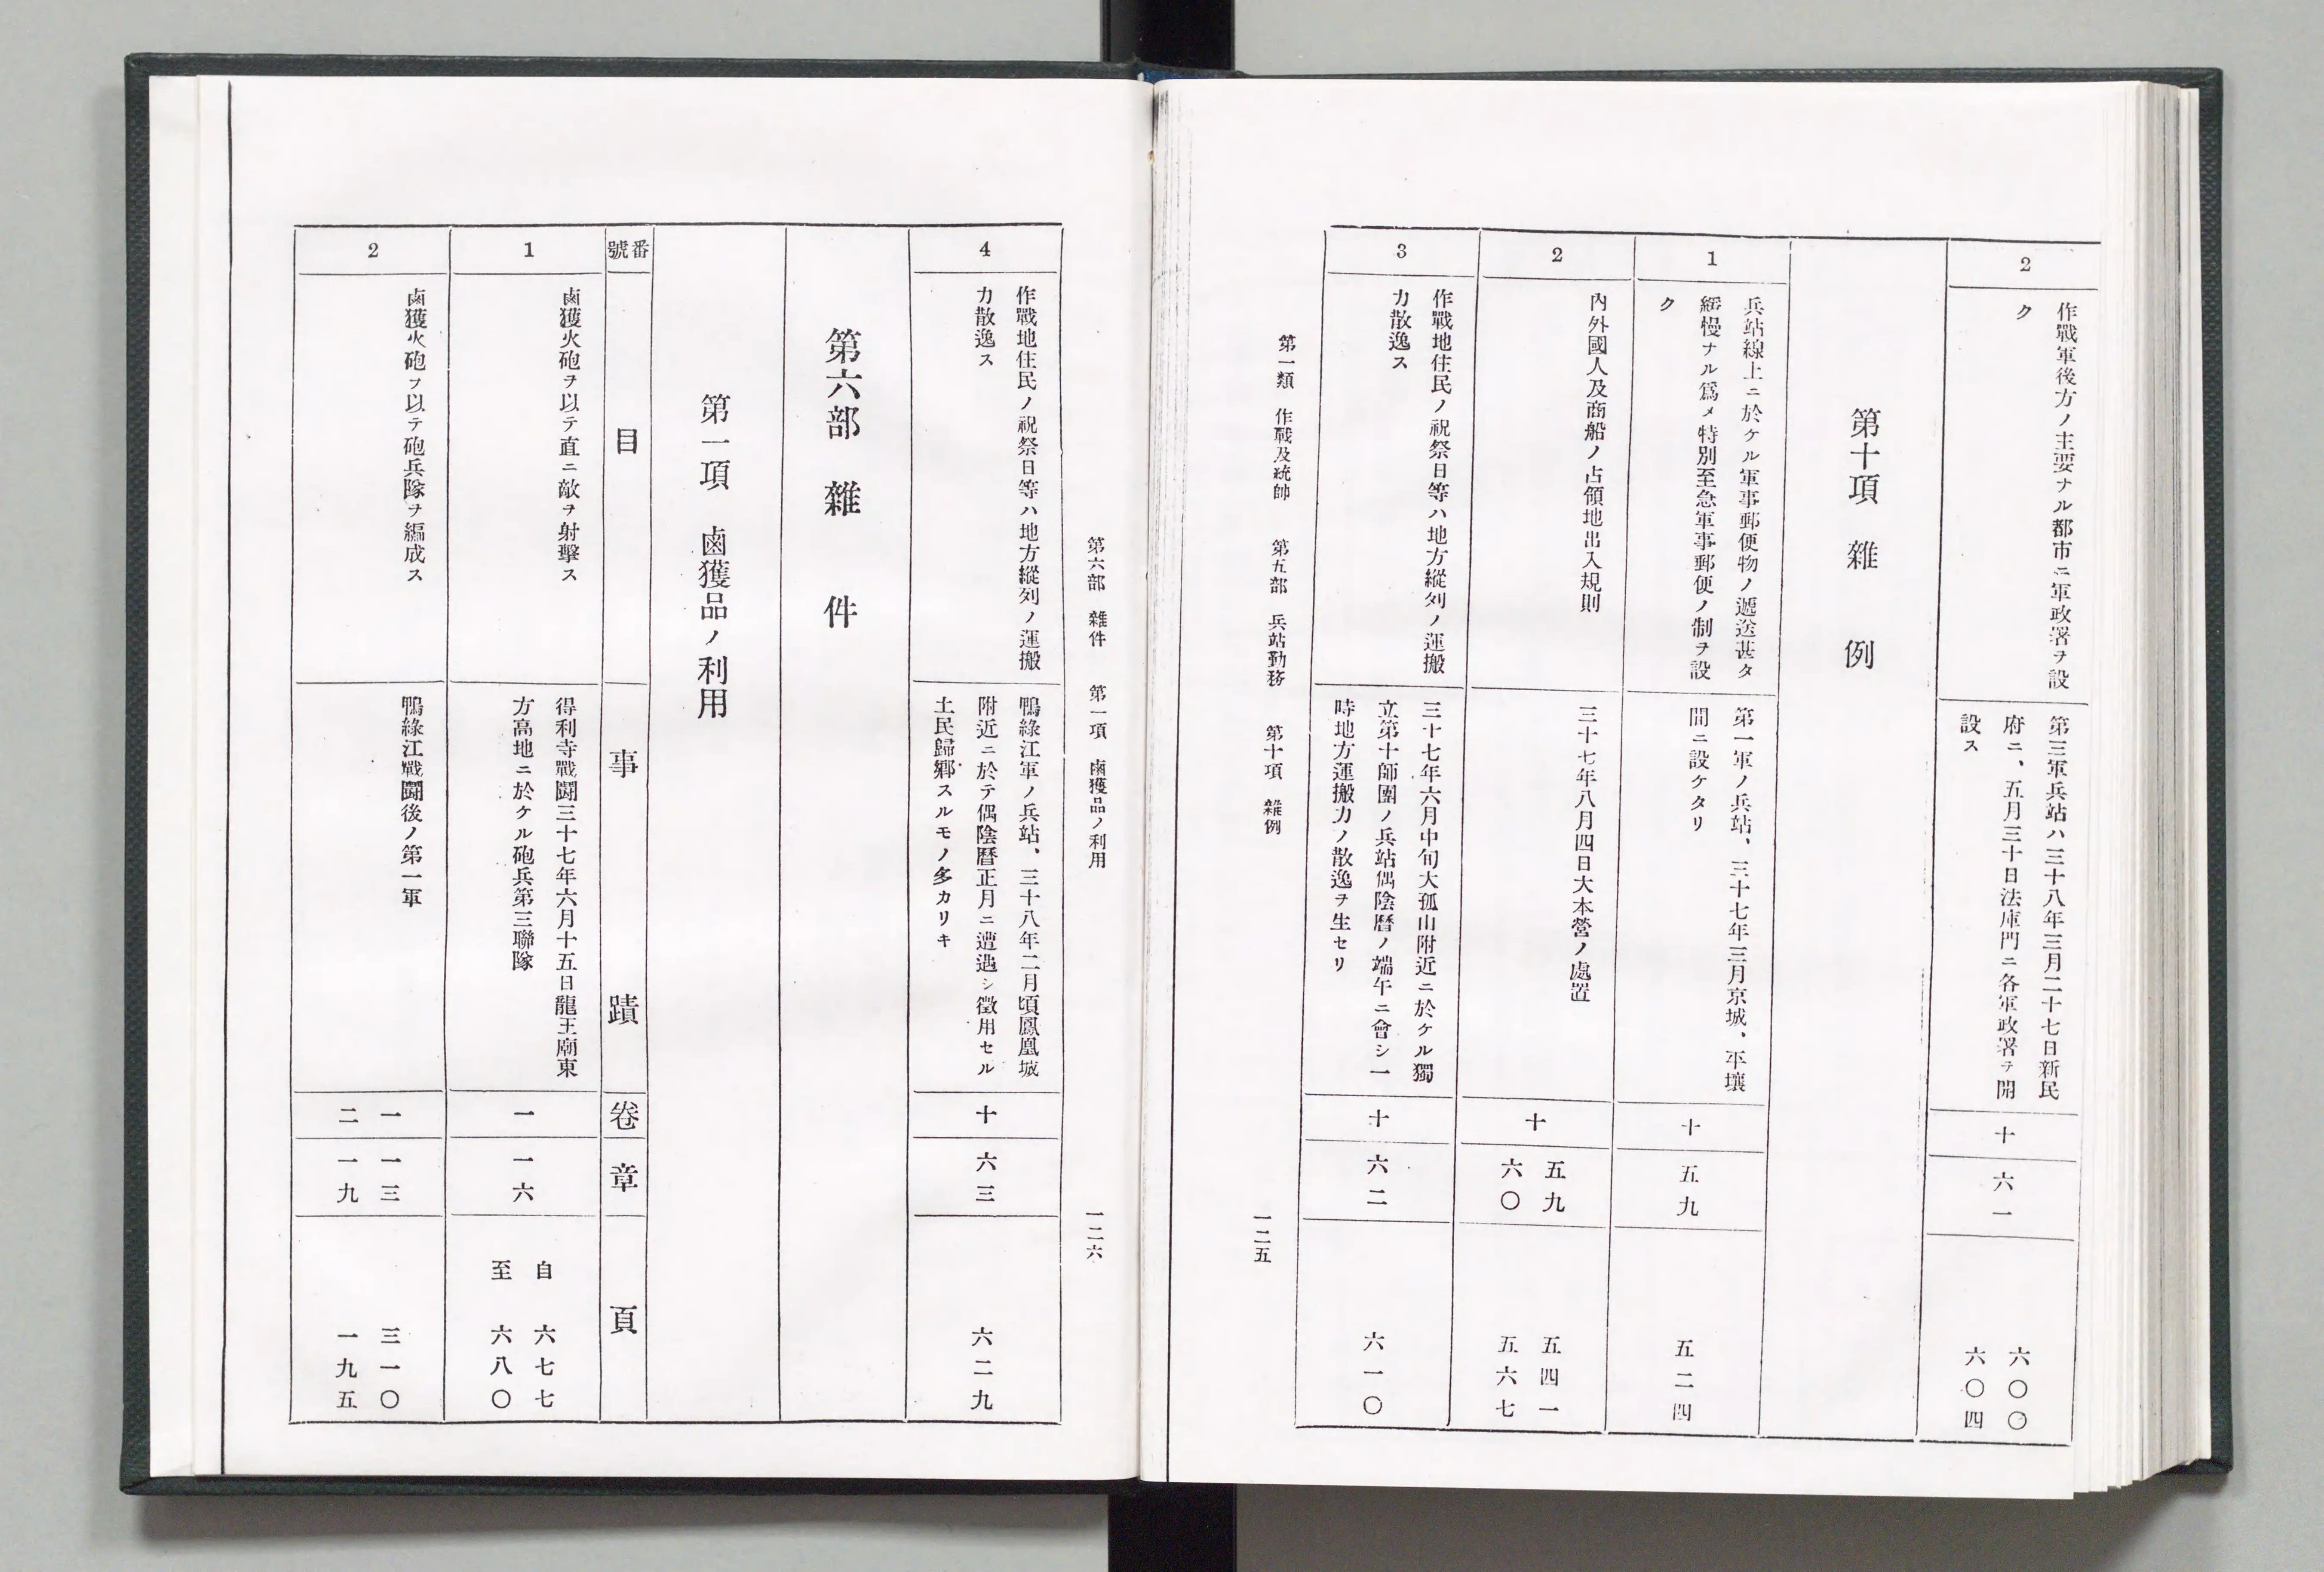 2
作戰軍後方ノ主要ナル都市ニ軍政署ヲ設
ク
第三軍兵站ハ三十八年三月二十七日新民
府ニ、五月三十日法庫門ニ各軍政署ヲ開
設ス
十
六一
六〇〇
六〇四
第十項 雜例
1
兵站線上ニ於ケル軍事郵便物ノ遞送甚タ
緩慢ナル爲メ特別至急軍事郵便ノ制ヲ設
ク
第一軍ノ兵站、三十七年三月京城、平壤
間ニ設ケタリ
十
五九
五二四
2
內外國人及商船ノ占領地出入規則
三十七年八月四日大本營ノ處置
十
五九
六〇
五四一
五六七
3
作戰地住民ノ祝祭日等ハ地方縱列ノ運搬
力散逸ス
三十七年六月中旬大孤山附近ニ於ケル獨
立第十師團ノ兵站偶陰曆ノ端午ニ會シ一
時地方運搬力ノ散逸ヲ生セリ
十
六二
六一〇
第一類 作戰及統帥 第五部 兵站勤務 第十項 雜例
一二五
第六部 雜件 第一項 鹵獲品ノ利用
一二六
4
作戰地住民ノ祝祭日等ハ地方縱列ノ運搬
力散逸ス
鴨綠江軍ノ兵站、三十八年二月頃鳳凰城
附近ニ於テ偶陰曆正月ニ遭遇シ徵用セル
土民歸鄕スルモノ多カリキ
十
六三
六二九
第六部 雜件
第一項 鹵獲品ノ利用
番號
目
事蹟
卷
章
頁
1
鹵獲火砲ヲ以テ直ニ敵ヲ射擊ス
得利寺戰鬪三十七年六月十五日龍王廟東
方高地ニ於ケル砲兵第三聯隊
一
一六
自 六七七
至 六八〇
2
鹵獲火砲ヲ以テ砲兵隊ヲ編成ス
鴨綠江戰鬪後ノ第一軍
一
二
一三
一九
三一〇
一九五